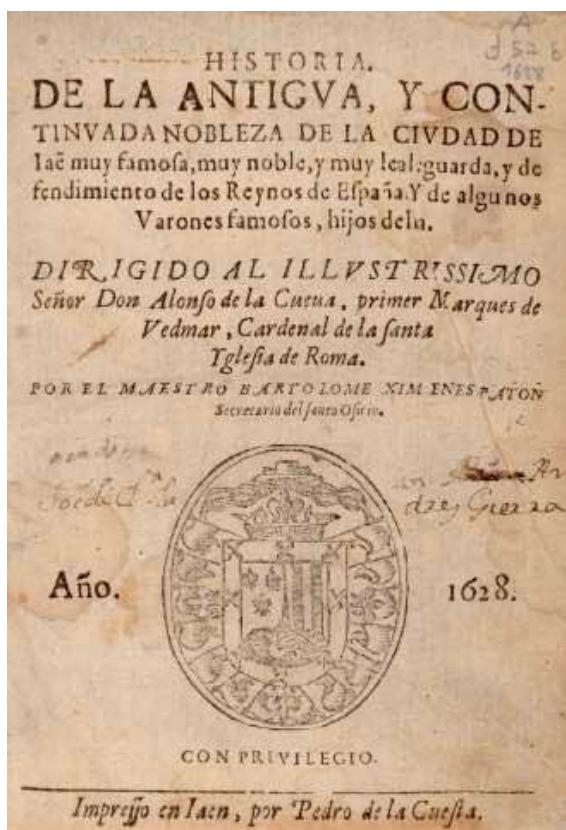 A
d 52 6
1628
HISTORIA.
DE LA ANTIGVA, Y CON-
TINVADA NOBLEZA DE LA CIVDAD DE
Iaē muy famoſa, muy noble, y muy leal: guarda, y de
fendimiento de los Reynos de Eſpaña. Y de algunos
Varones famoſos, hijos della.
DIRIGIDO AL ILLVSTRISSIMO
Señor Don Alonſo de la Cueua, primer Marques de
Vedmar, Cardenal de la ſanta
Ygleſia de Roma.
POR EL MAESTRO BARTOLOME XIMENES PATON
Secretario del ſanto Oficio.
Año.
1628.
CON PRIVILEGIO.
Impreſſo en Iaen, por Pedro de la Cueſta.